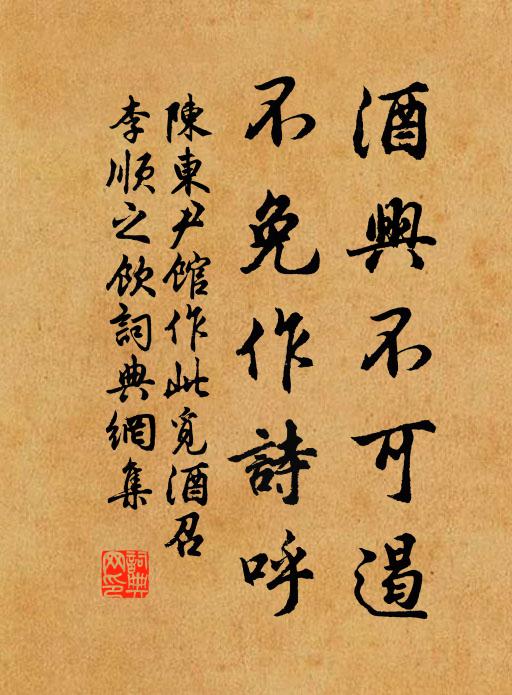 酒興不可遏
不免作詩呼
陳東尹館作此覓酒召
李順之飲詞典網集
詞典网印